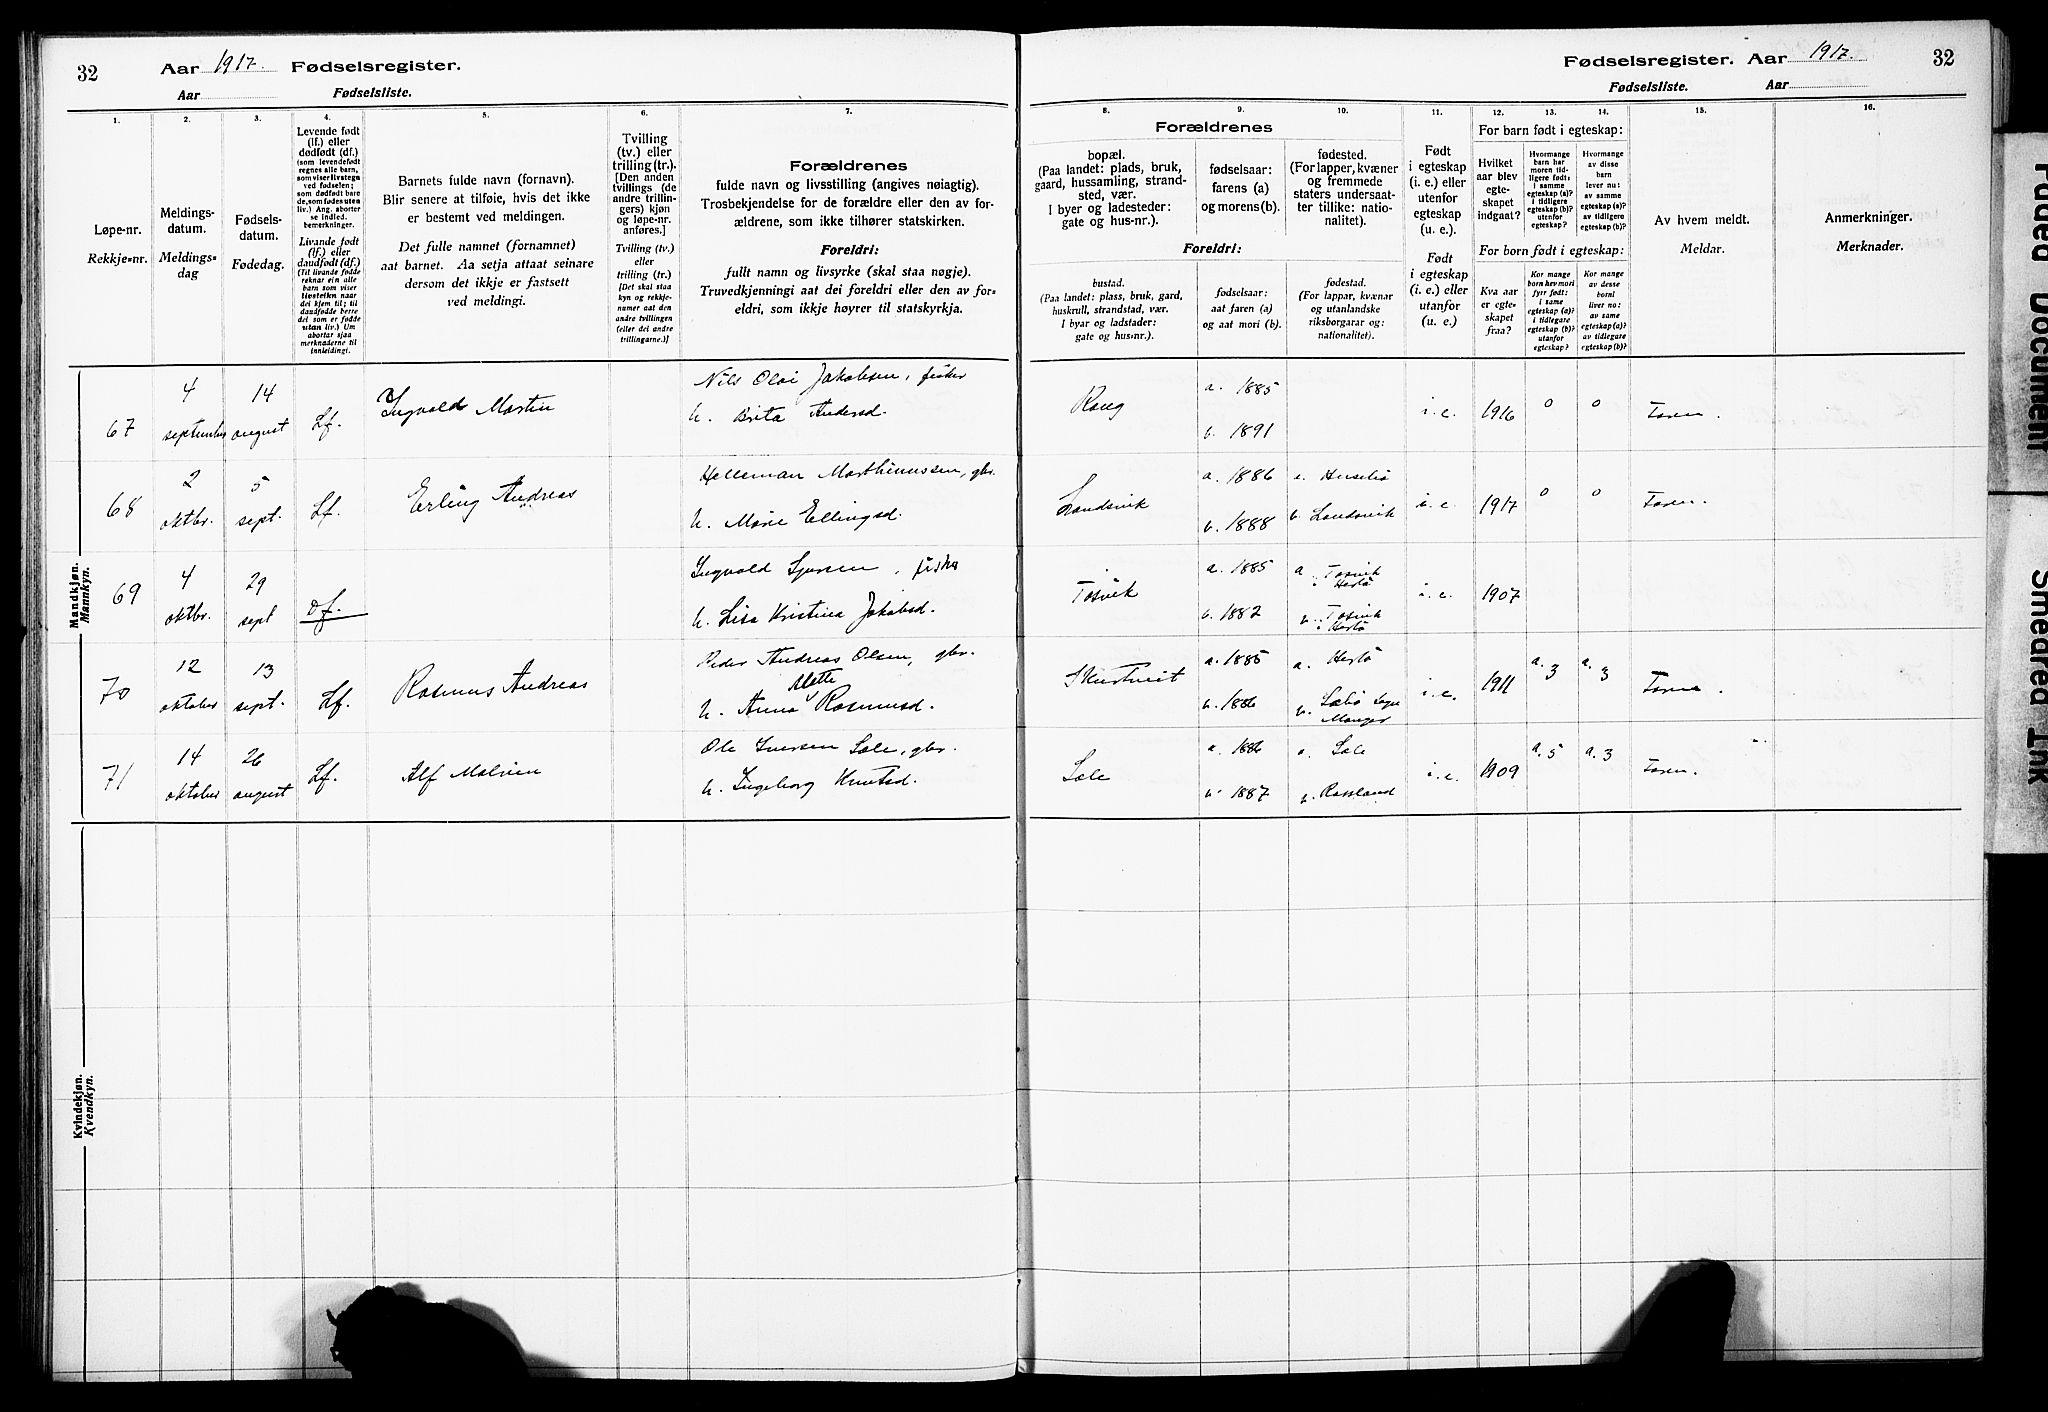 32
Aar 1917. Fødselsregister.
Aar Fødselsliste.
Fødselsregister. Aar 1917.
32
Fødselsliste. Aar
1.
Løpe-nr.
Rekkje-nr.
2.
Meldings-
datum.
Meldings-
dag
3.
Fødsels-
datum.
Fødedag.
4.
Levende født
(lf.) eller
dødfødt (df.)
(som levendefødt
regnes alle barn,
som viser livstegn
ved fødselen;
som dødfødt bare
de, som fødes uten
liv.) Ang. aborter
se indled.
bemerkninger.
Livande født
(lf.) eller
daudfødt (df.)
(Til livande fødde
reknar ein alle
barn som viser
livsteikn naar
dei kjem til; til
daudfødde berre
dei som er fødde
utan liv.) Um
abortar sjaa
merknaderne til
innleidingi.
5.
Barnets fulde navn (fornavn).
Blir senere at tilføie, hvis det ikke
er bestemt ved meldingen.
Det fulle namnet (fornamnet)
aat barnet. Aa setja attaat seinare
dersom det ikkje er fastsett
ved meldingi.
6.
Tvilling
(tv.) eller
trilling (tr.).
[Den anden
tvillings (de
andre trillin-
gers) kjøn
og løpe-nr.
anføres.]
Tvilling (tv.)
eller
trilling (tr.)
[Det skal staa
kyn og rekkje-
numer aat den
andre tvillingen
(eller dei andre
trillingarne.)]
7.
Forældrenes
fulde navn og livsstilling (angives nøiagtig).
Trosbekjendelse for de forældre eller den av for-
ældrene, som ikke tilhører statskirken.
Foreldri:
fullt namn og livsyrke (skal staa nøgje).
Truvedkjenningi aat dei foreldri eller den av for-
eldri, som ikkje høyrer til statskyrkja.
8.
9.
10.
Forældrenes
bopæl.
(Paa landet: plads, bruk,
gaard, hussamling, strand-
sted, vær.
I byer og ladesteder:
gate og hus-nr.).
fødselsaar:
farens (a)
og morens (b).
fødested.
(For lapper, kvæner
og fremmede
staters undersaat-
ter tillike: natio-
nalitet).
Foreldri:
bustad.
(Paa landet: plass, bruk, gard,
huskrull, strandstad, vær.
I byar og ladstader:
gate og hus-nr.).
fødselsaar:
aat faren (a)
og aat mori (b).
fødestad.
(For lappar, kvænar
og utanlandske
riksborgarar og:
nationalitet).
11.
Født
i egteskap
(i. e.) eller
utenfor
egteskap
(u. e.).
Født
i egteskap
(i. e.) eller
utanfor
(u. e.).
12.
13.
14.
For barn født i egteskap:
Hvilket
aar blev
egte-
skapet
indgaat?
Hvormange
barn har
moren tid-
ligere født:
i samme
egteskap (a)?
i tidligere
egteskap (b)?
utenfor
egteskap?
Hvormange
av disse
barn
lever nu:
av samme
egteskap (a)?
av tidligere
egteskap (b)?
For born født i egteskap:
Kva aar
er egte-
skapet
fraa?
Kor mange
born hev mori
fyrr født:
i same
egteskap (a)?
i tidlegare
egteskap (b)?
utanfor
egteskap?
Kor mange
av desse
born
liver no:
av same
egteskap (a)?
av tidlegare
egteskap (b)?
15.
Av hvem meldt.
Meldar.
16.
Anmerkninger.
Merknader.
Mandkjøn.
Mannkyn.
67
4
september
14
august
Lf.
Ingvald Martin
Nils Olai Jakobsen, fisker
h. Brita Andersd.
Rong
a. 1885
b. 1891
i. e.
1916
0
0
Faren.
68
2
oktbr.
5
sept.
Lf.
Erling Andreas
Helleman Marthinussen, gbr.
h. Marie Ellingsd.
Landsvik
a. 1886
b. 1888
a. Husebø
b. Landsvik
i. e.
1917
0
0
Faren.
69
4
oktbr.
29
sept
df.
Ingvald Sjursen, fisker
h. Lisa Kristina Jakobsd.
Tosvik
a. 1885
b. 1882
a. Tosvik
i Herlø
b. Tosvik
i Herlø
i. e.
1907
70
12
oktober
13
sept.
Lf.
Rasmus Andreas
Peder Andreas Olsen, gbr.
Mette
h. Anna Rasmusd.
a. 1885
b. 1886
a. Herlø
b. Sæbø Sogn
Manger
i. e.
1911
a. 3
a. 3
Faren.
71
14
oktober
26
august
Lf.
Alf Malvin
Ole Iversen Sæle, gbr.
h. Ingeborg Knutsd.
Sæle
a. 1886
b. 1887
a. Sæle
b. Rossland
i. e.
1909
a. 5
a. 3
Faren.
Kvindekjøn.
Kvendkyn.
Faded Document
Smeared Ink